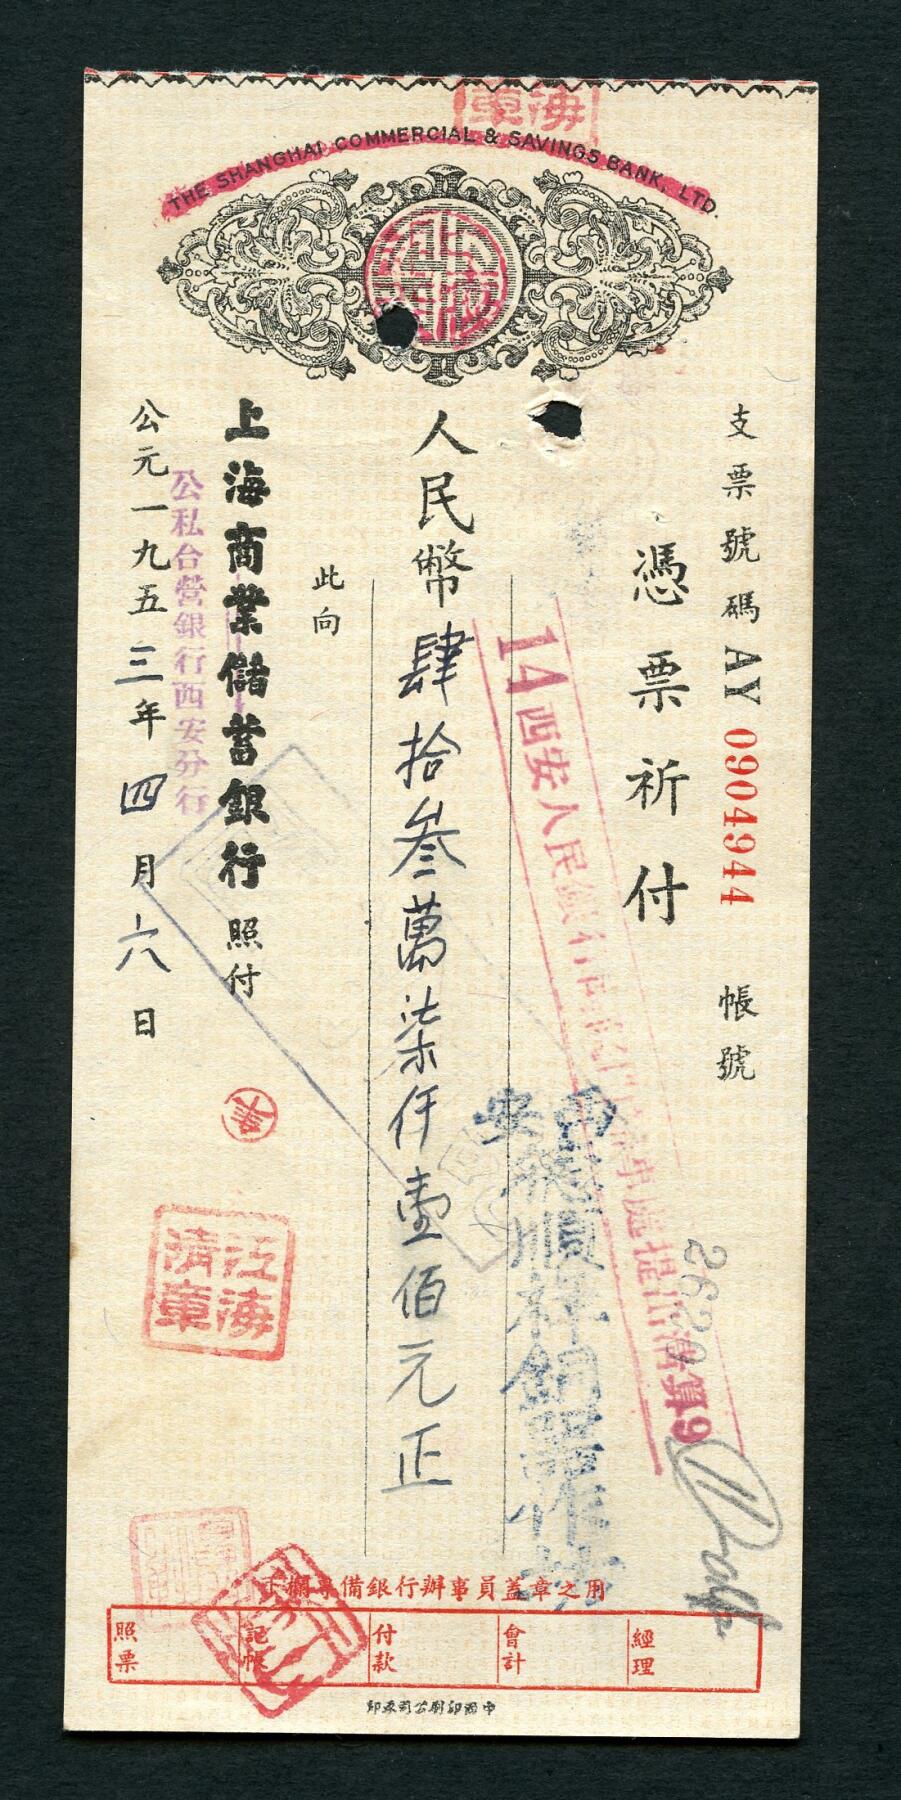 THE SHANGHAI COMMERCIAL & SAVINGS BANK, LTD.
支票號碼 AY 0904944 帳號
2620
憑票祈付
14西安人民銀行
提出清算9
西安
順祥銅器作坊
人民幣肆拾叁萬柒仟壹佰元正
此向
上海商業儲蓄銀行照付
公私合營銀行西安分行
公元一九五三年四月六日
美
江海清章
下欄專備銀行辦事員蓋章之用
經理
會計
付款
記帳
照票